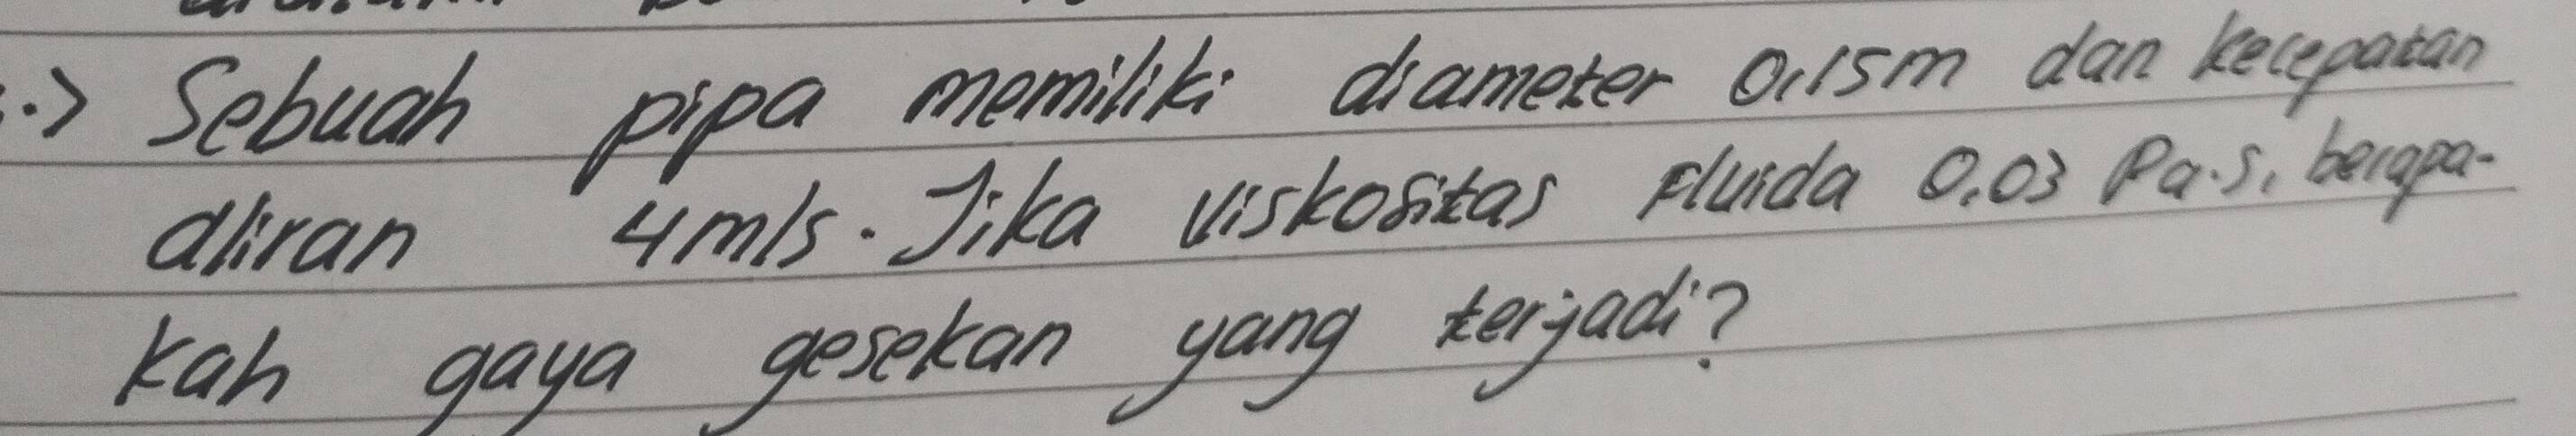 .> Sebuah pipa memiliki diameter 0,15m dan kecepatan
aliran 4m/s. Jika viskositas Fluida 0.03 Pa.s, berapa-
kah gaya gesekan yang terjadi?